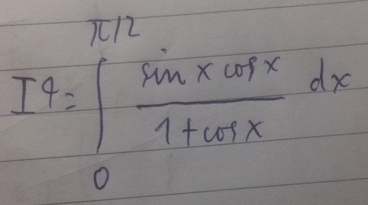 I4 = ∫₀^π/2 sin x cos x / 1 + cos x dx